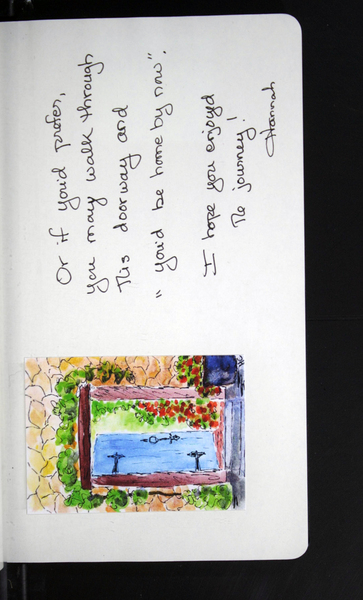 Or if you'd prefer,
you may walk through
this doorway and
"you'd be home by now".
I hope you enjoyed
the journey!
Hannah